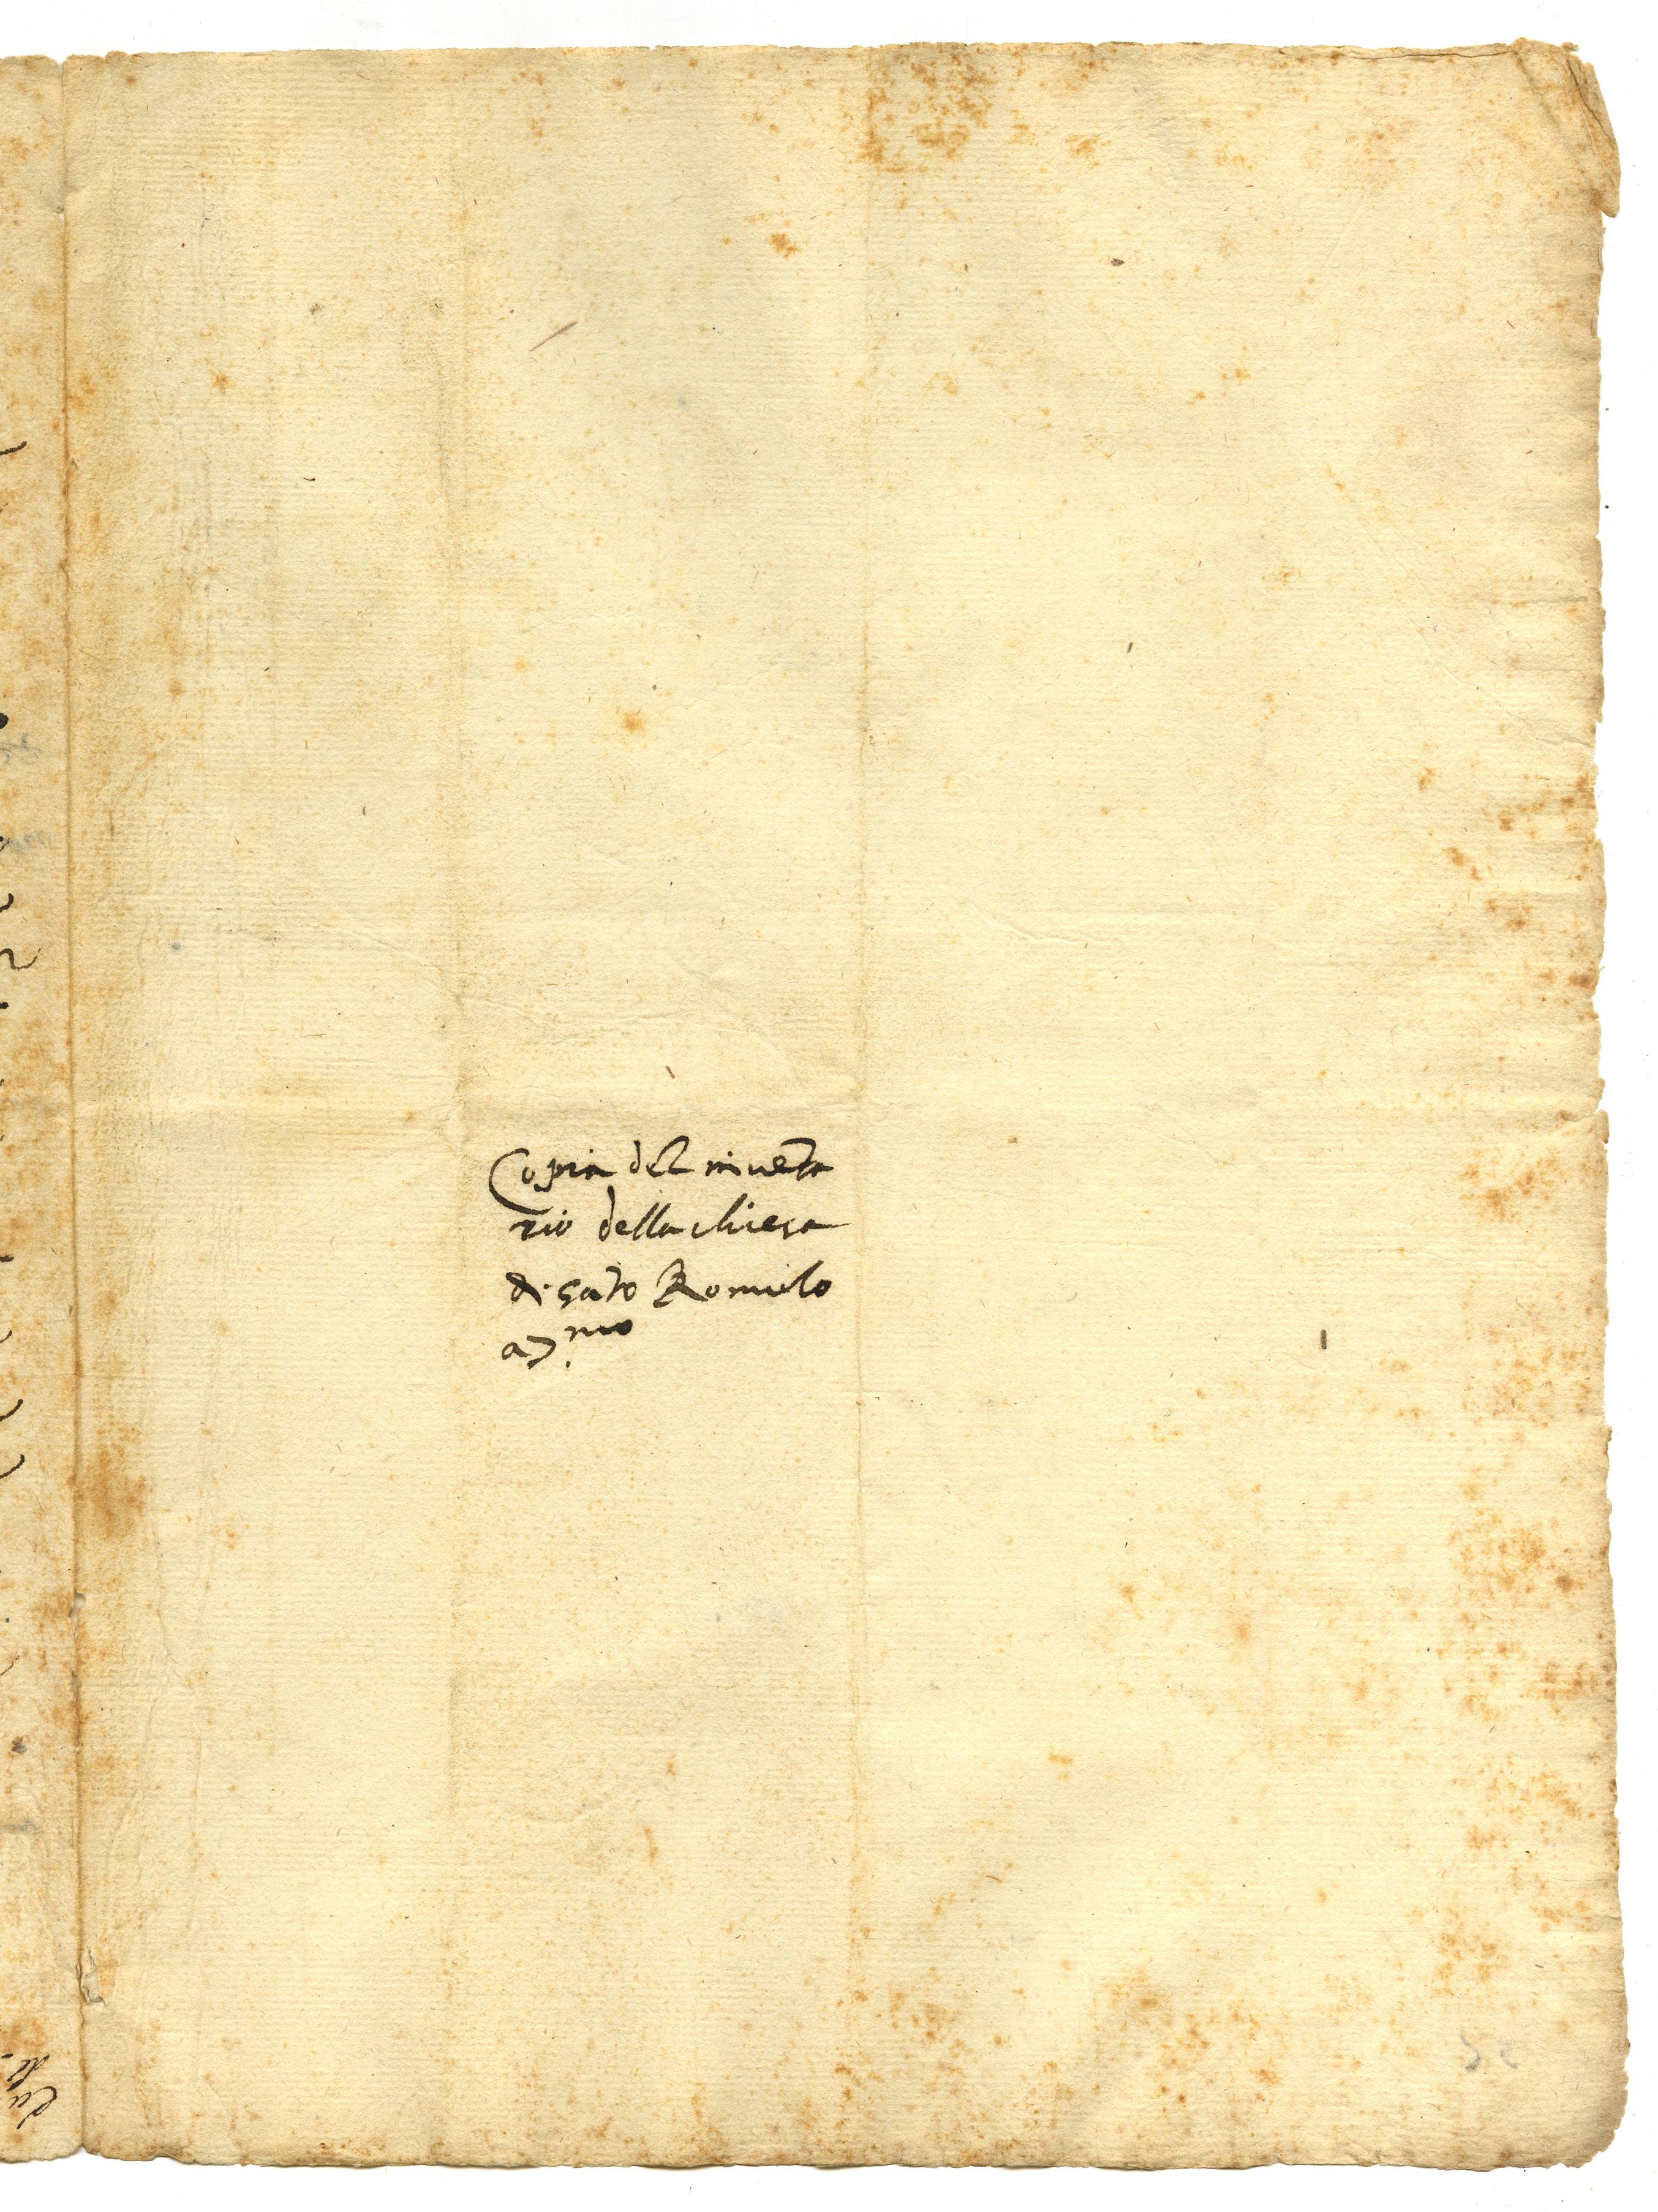 Copia del inveta
rio della chiesa
di sato Romulo